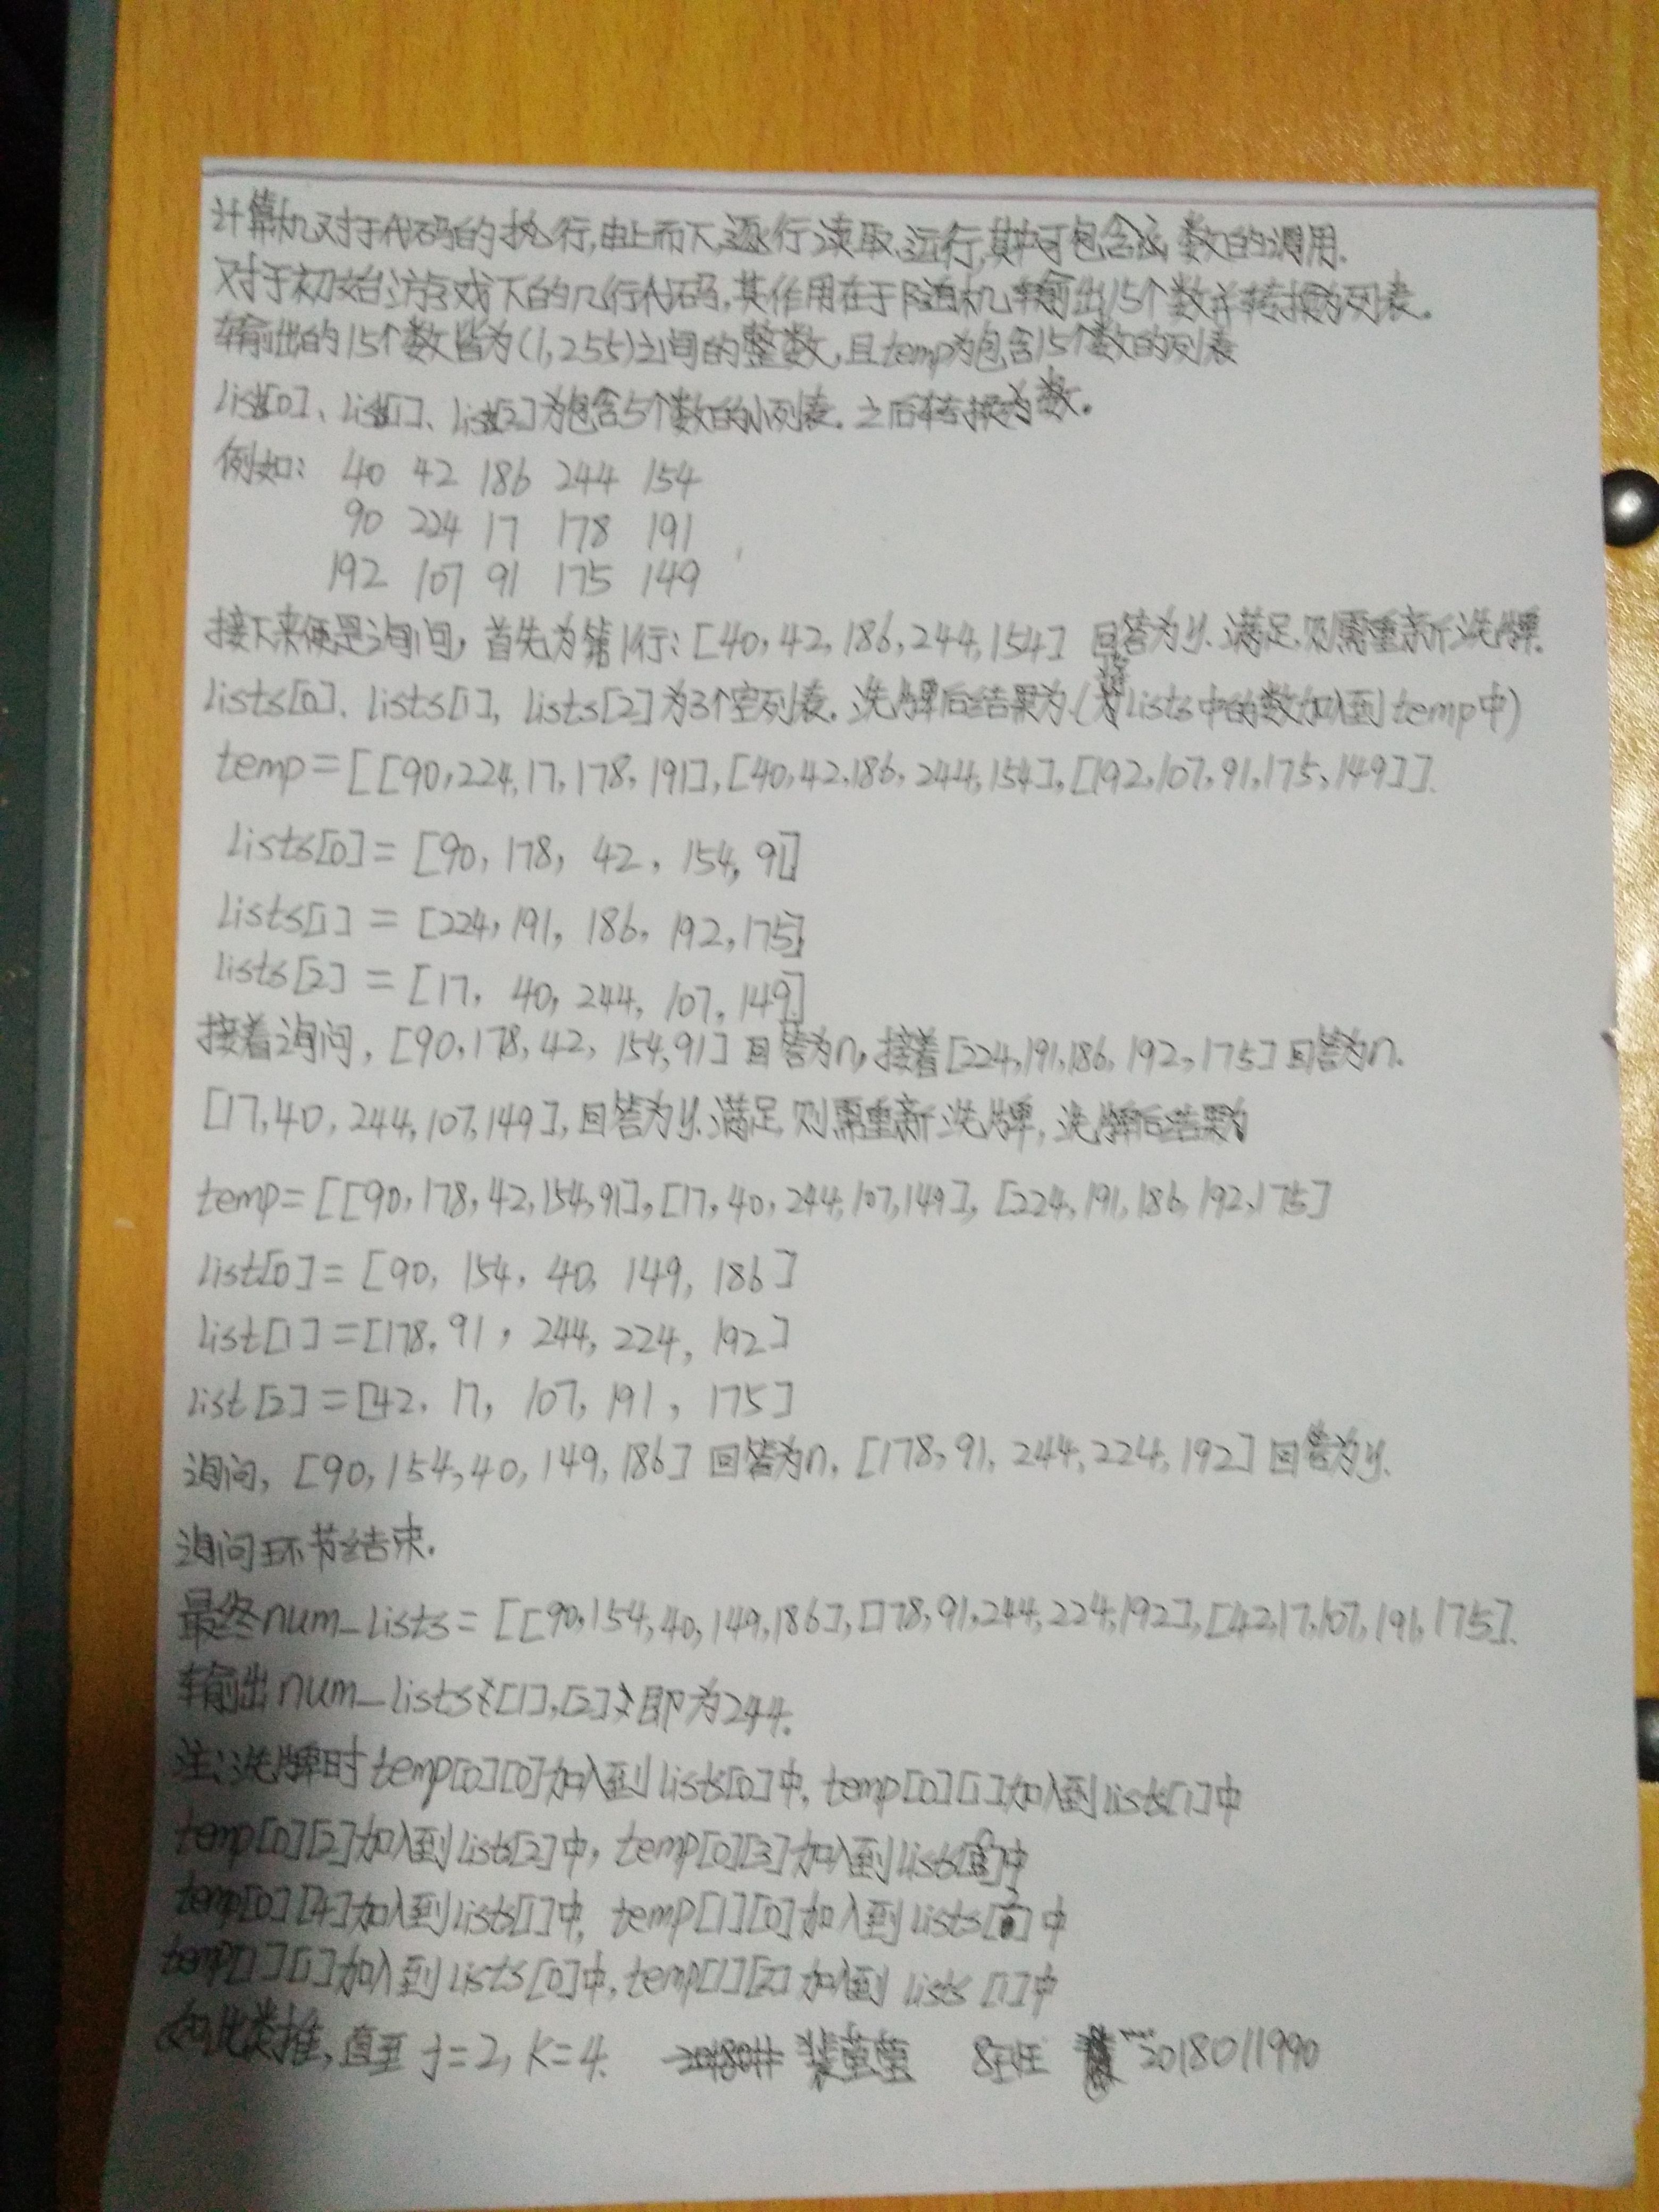 计算机对于代码的执行,由上而下,逐行读取、运行,其中可包含函数的调用.
对于初始游戏下的几行代码,其作用在于随机输出15个数并转换为列表。
输出的15个数皆为(1,255)之间的整数,且temp为包含15个数的列表
lists[0]、lists[1]、lists[2]为包含5个数的小列表。之后转换为数。
例如: 40 42 186 244 154
90 224 17 178 191
192 107 91 175 149
接下来便是询问,首先为第1行:[40,42,186,244,154] 回答为y.满足,则需重新洗牌.
lists[0]、lists[1], lists[2]为3个空列表。洗牌后结果为.(将lists中的数加入到temp中)
temp=[[90,224,17,178,191],[40,42,186,244,154],[192,107,91,175,149]].
lists[0]=[90,178,42,154,91]
lists[1]=[224,191,186,192,175]
lists[2]=[17,40,244,107,149]
接着询问,[90,178,42,154,91]回答为n,接着[224,191,186,192,175]回答为n.
[17,40,244,107,149],回答为y.满足,则需重新洗牌,洗牌后结果为
temp=[[90,178,42,154,91],[17,40,244,107,149],[224,191,186,192,175]
list[0]=[90,154,40,149,186]
list[1]=[178,91,244,224,192]
list[2]=[42,17,107,191,175]
询问,[90,154,40,149,186]回答为n,[178,91,244,224,192]回答为y.
询问环节结束.
最终num_lists=[[90,154,40,149,186],[178,91,244,224,192],[42,17,107,191,175].
输出num_lists{[1],[2]}即为244.
注:洗牌时temp[0][0]加入到lists[0]中,temp[0][1]加入到lists[1]中
temp[0][2]加入到lists[2]中,temp[0][3]加入到lists[0]中
temp[0][4]加入到lists[1]中,temp[1][0]加入到lists[2]中
temp[1][1]加入到lists[0]中,temp[1][2]加入到lists[1]中
如此类推,直至j=2,k=4. 8班 2018011990